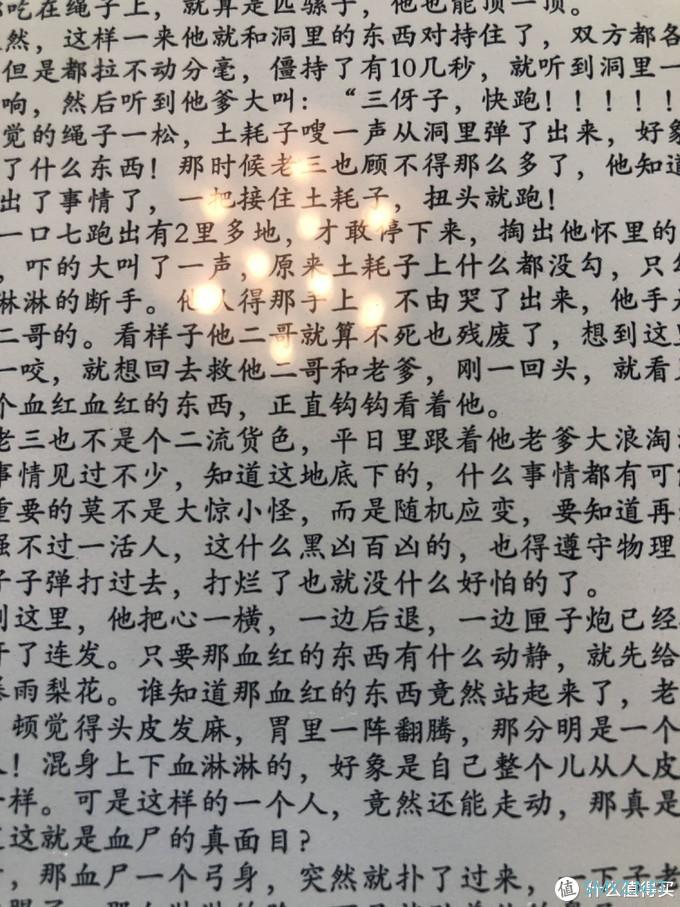 吃在绳子上，就算是匹骡子，他也能顶一顶。
然，这样一来他就和洞里的东西对持住了，双方都各
但是都拉不动分毫，僵持了有10几秒，就听到洞里一
响，然后听到他爹大叫：“三伢子，快跑！！！！！
觉的绳子一松，土耗子嗖一声从洞里弹了出来，好象
了什么东西！那时候老三也顾不得那么多了，他知道
出了事情了，一把接住土耗子，扭头就跑！
一口七跑出有2里多地，才敢停下来，掏出他怀里的
，吓的大叫了一声，原来土耗子上什么都没勾，只勾
淋淋的断手。他认得那手上，不由哭了出来，他手是
二哥的。看样子他二哥就算不死也残废了，想到这里
一咬，就想回去救他二哥和老爹，刚一回头，就看见
个血红血红的东西，正直钩钩看着他。
老三也不是个二流货色，平日里跟着他老爹大浪淘沙
事情见过不少，知道这地底下的，什么事情都有可能
重要的莫不是大惊小怪，而是随机应变，要知道再
强不过一活人，这什么黑凶百凶的，也得遵守物理
子子弹打过去，打烂了也就没什么好怕的了。
到这里，他把心一横，一边后退，一边匣子炮已经
开了连发。只要那血红的东西有什么动静，就先给
暴雨梨花。谁知道那血红的东西竟然站起来了，老
顿觉得头皮发麻，胃里一阵翻腾，那分明是一个
！混身上下血淋淋的，好象是自己整个儿从人皮
一样。可是这样的一个人，竟然还能走动，那真是
这就是血尸的真面目？
，那血尸一个弓身，突然就扑了过来，一下子老
值 什么值得买